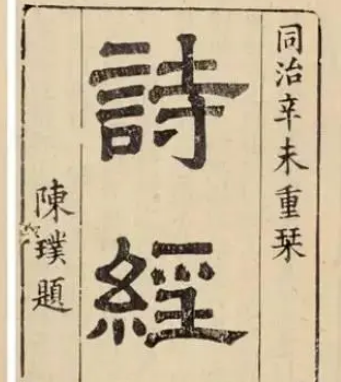 同治辛未重栞
詩經
陳璞題